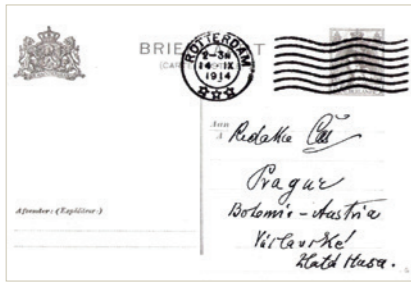 BRIEFKAART
(CARTE POSTALE)
ROTTERDAM
2-3N
14 IX
1914
Aan
A
Redakce Čas
Prague
Bohemia - Austria
Václavské
Zlatá Husa.
Afzender: (Expéditeur:)